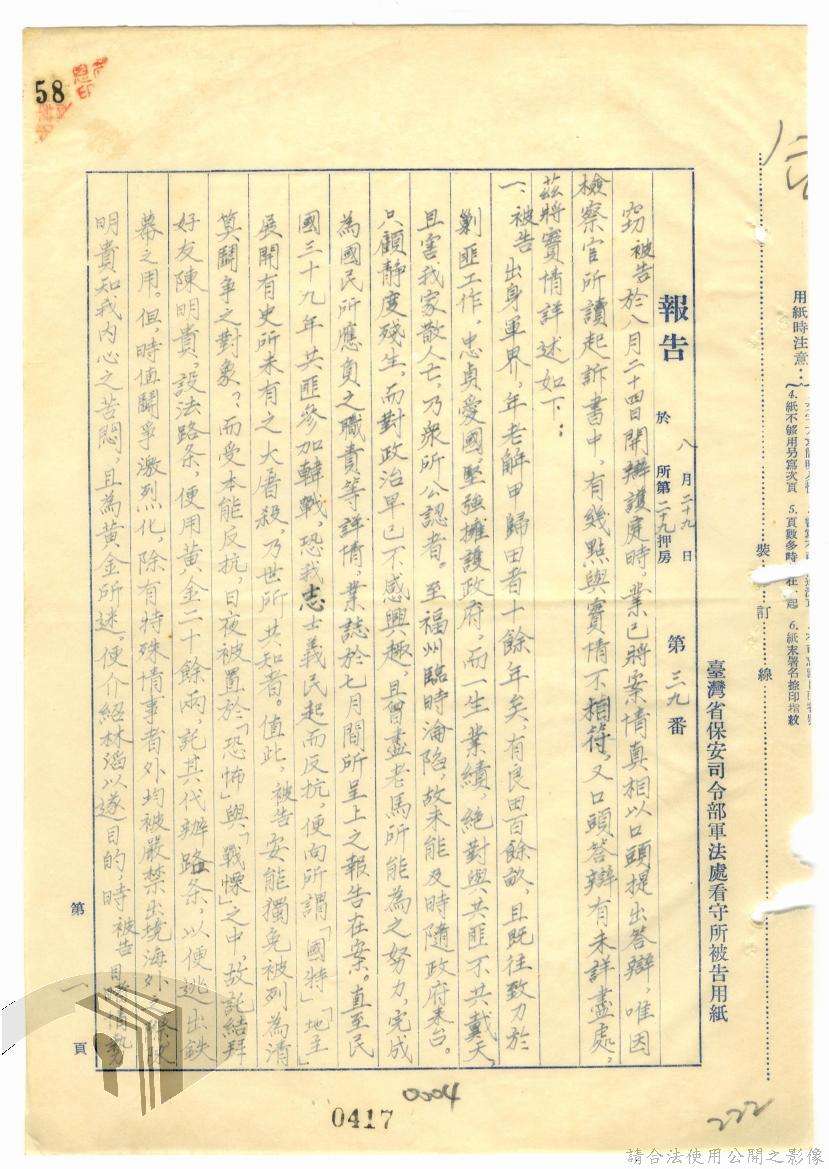 58
用紙時注意：
4.紙不够用另寫次頁
5.頁數多時
6.紙末署名捺印指紋
裝 訂 線
臺灣省保安司令部軍法處看守所被告用紙
報告 於 八月二十九日 所第二十九押房 第三九番
竊 被告於八月二十四日開辯護庭時，業已將案情真相以口頭提出答辯，唯因
檢察官所讀起訴書中，有幾點與實情不相符，又口頭答辯有未詳盡處，
茲將實情詳述如下：
一、被告 出身軍界，年老解甲歸田者十餘年矣，有良田百餘畝，且既往致力於
剿匪工作，忠貞愛國，堅強擁護政府，而一生業績，絕對與共匪不共戴天，
且害我家散人亡，乃衆所公認者。至福州臨時淪陷，故未能及時隨政府來台。
只顧靜度殘生，而對政治早已不感興趣，且曾盡老馬所能為之努力，完成
為國民所應負之職責等詳情，業誌於七月間所呈上之報告在案。直至民
國三十九年，共匪參加韓戰，恐我志士義民起而反抗，便向所謂「國特」「地主」
展開有史所未有之大屠殺，乃世所共知者。值此，被告安能獨免被列為清
算鬪爭之對象？，而受本能反抗，日夜被置於「恐怖」與「戰慄」之中，故託結拜
好友陳明貴，設法路条，便用黃金二十餘兩，託其代辦路条，以便逃出鉄
幕之用。但，時值鬪爭激烈化，除有特殊情事者外均被嚴禁出境海外，
明貴知我內心之苦悶，且為黃金所迷，便介紹林滔以遂目的，時 被告目睹情勢
第一頁
0004
0417
222
請合法使用公開之影像